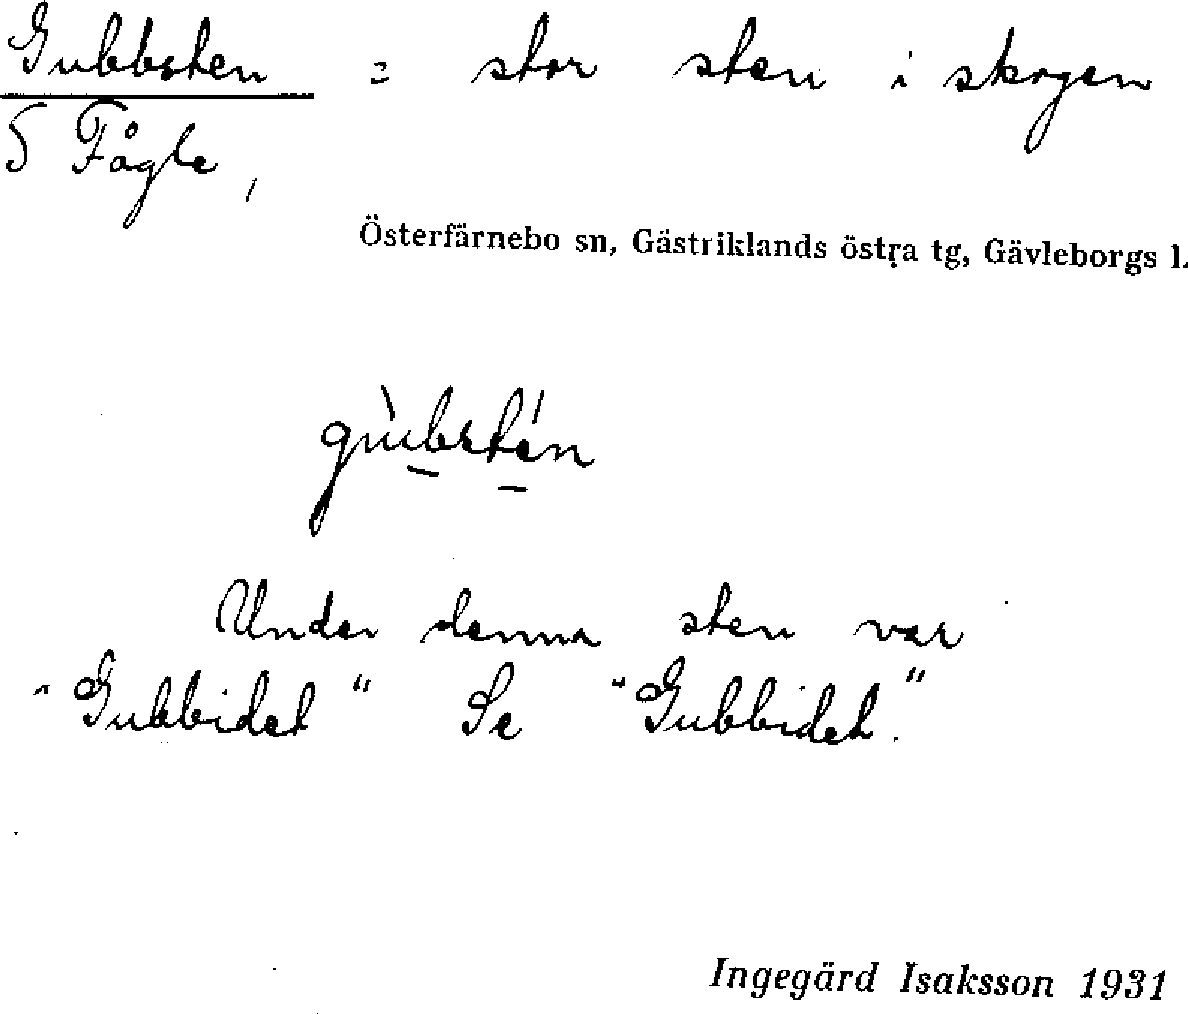 Gubbsten = stor sten i skogen
5 Fågle,
Österfärnebo sn, Gästriklands östra tg, Gävleborgs l.
gùbstén
Under denna sten var
"Gubbidet" Se "Gubbidet."
Ingegärd Isaksson 1931